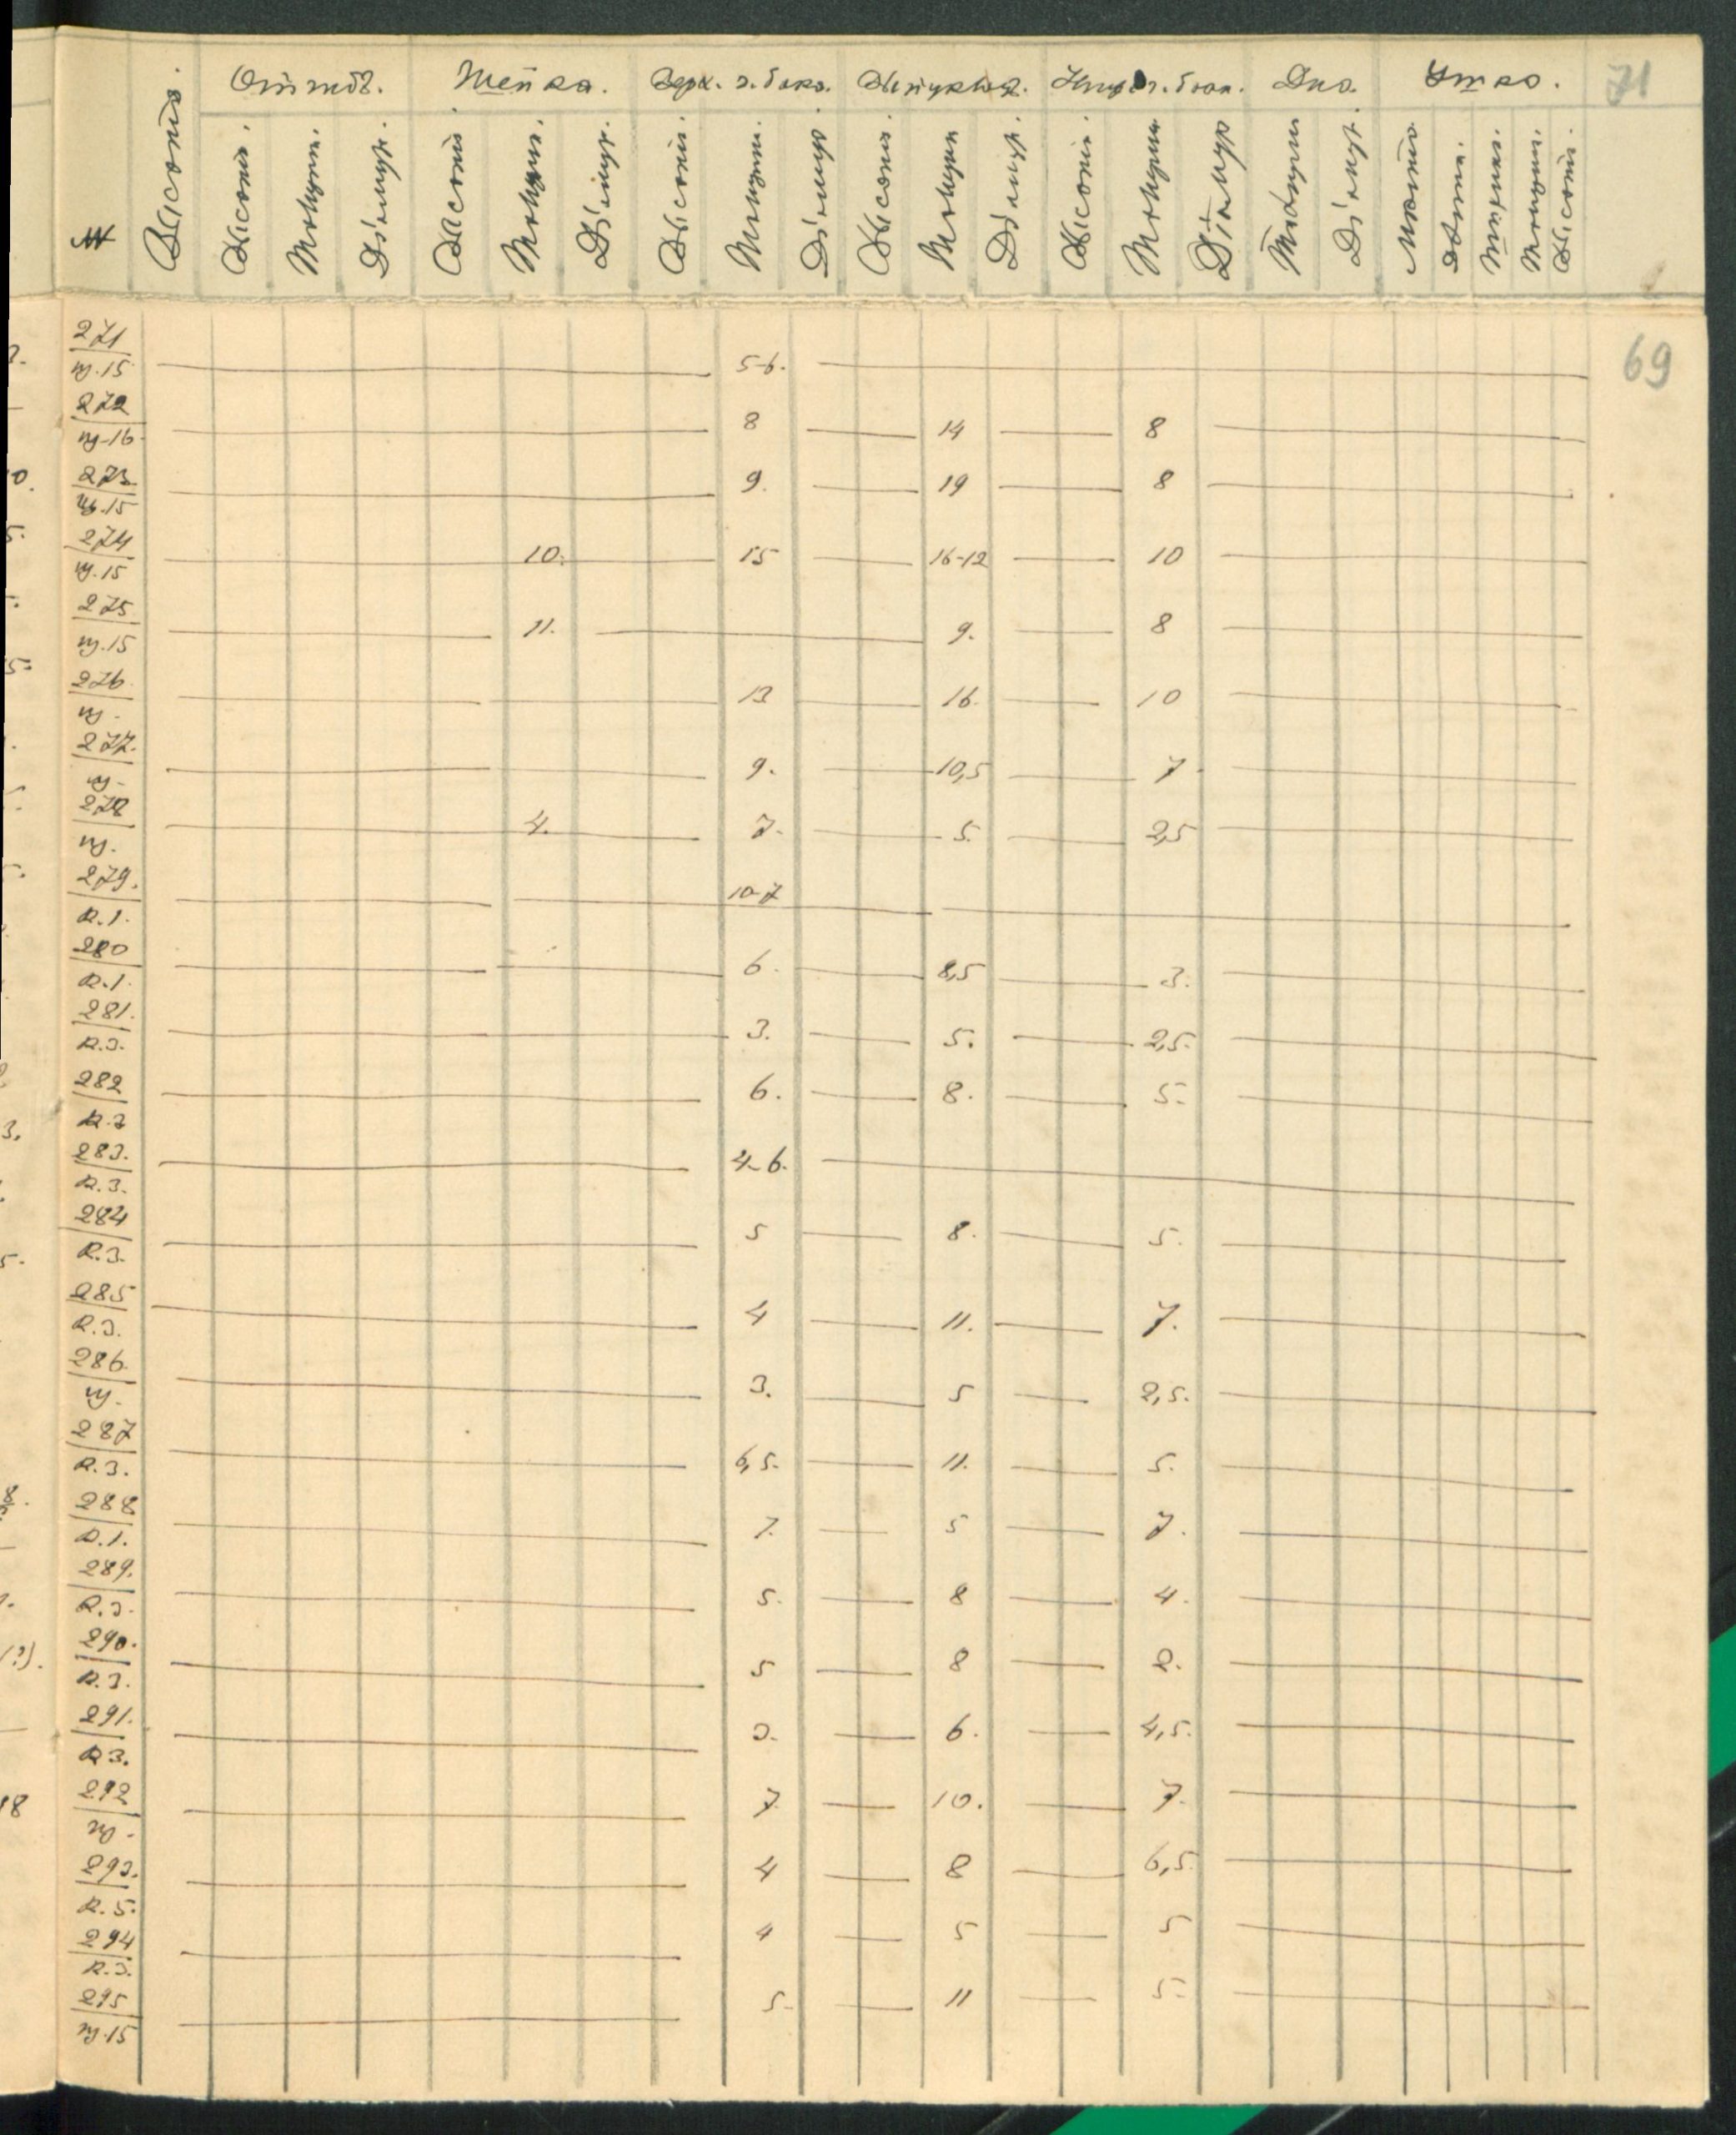 71
Шейка. Верх. ч. бока. Выпуклост. Дно. Ушко.
№ Высота. Высота. Толщин. Діаметр. Высота Толщин. Діаметр. Высота. Толщин. Діаметр Высота. Толщин Діаметр. Высота. Толщин Діаметр Толщин Діаметр. Высота.
69
271
щ.15 5-6.
272
щ-16 8 14 8
273
щ.15 9. 19 8
274
щ.15 10. 15 16-12 10
275
щ.15 11. 9. 8
276
щ. 13 16. 10
277.
щ. 9. 10,5 7
278
щ. 4. 7. 5. 2,5
279.
к.1. 10-7
280
к.1. 6. 8,5 3.
281.
к.3. 3. 5. 2,5.
282
к.3 6. 8. 5.
283.
к.3. 4-6.
284
к.3. 5 8. 5.
285
к.3. 4 11. 7.
286.
щ. 3. 5 2,5.
287
к.3. 6,5. 11. 5.
288
к.1. 7. 5 7.
289.
к.3. 5. 8 4.
290.
к.3. 5 8 2.
291.
к3. 3. 6. 4,5.
292
щ. 7. 10. 7.
293.
к.5. 4 8 6,5.
294
к.3. 4 5 5
295
щ.15 5. 11 5.